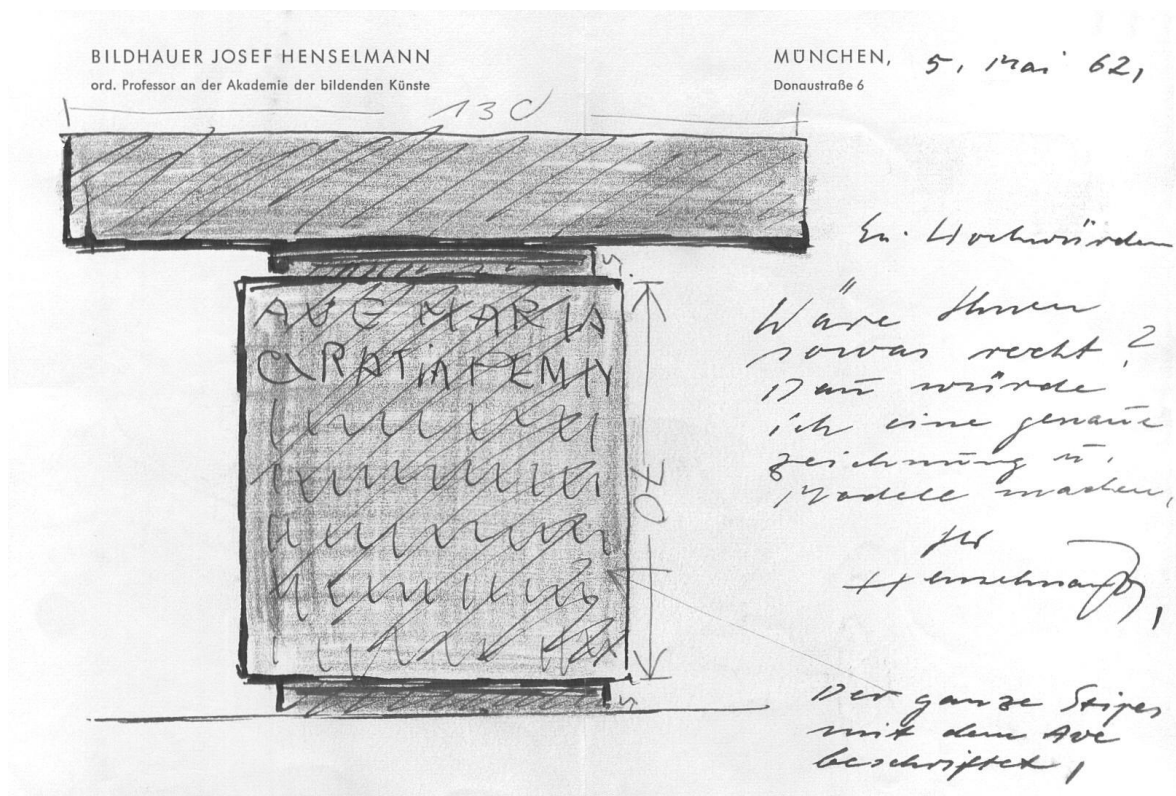 BILDHAUER JOSEF HENSELMANN
ord. Professor an der Akademie der bildenden Künste
MÜNCHEN, 5. Mai 62,
Donaustraße 6
130
Ew. Hochwürden
5.
AVE MARIA
GRATIA PLENA
Wäre Ihnen
sowas recht?
Dann würde
ich eine genaue
Zeichnung u.
Modell machen,
70
Ihr
Henselmann,
5.
Der ganze Stipes
mit dem Ave
beschriftet,